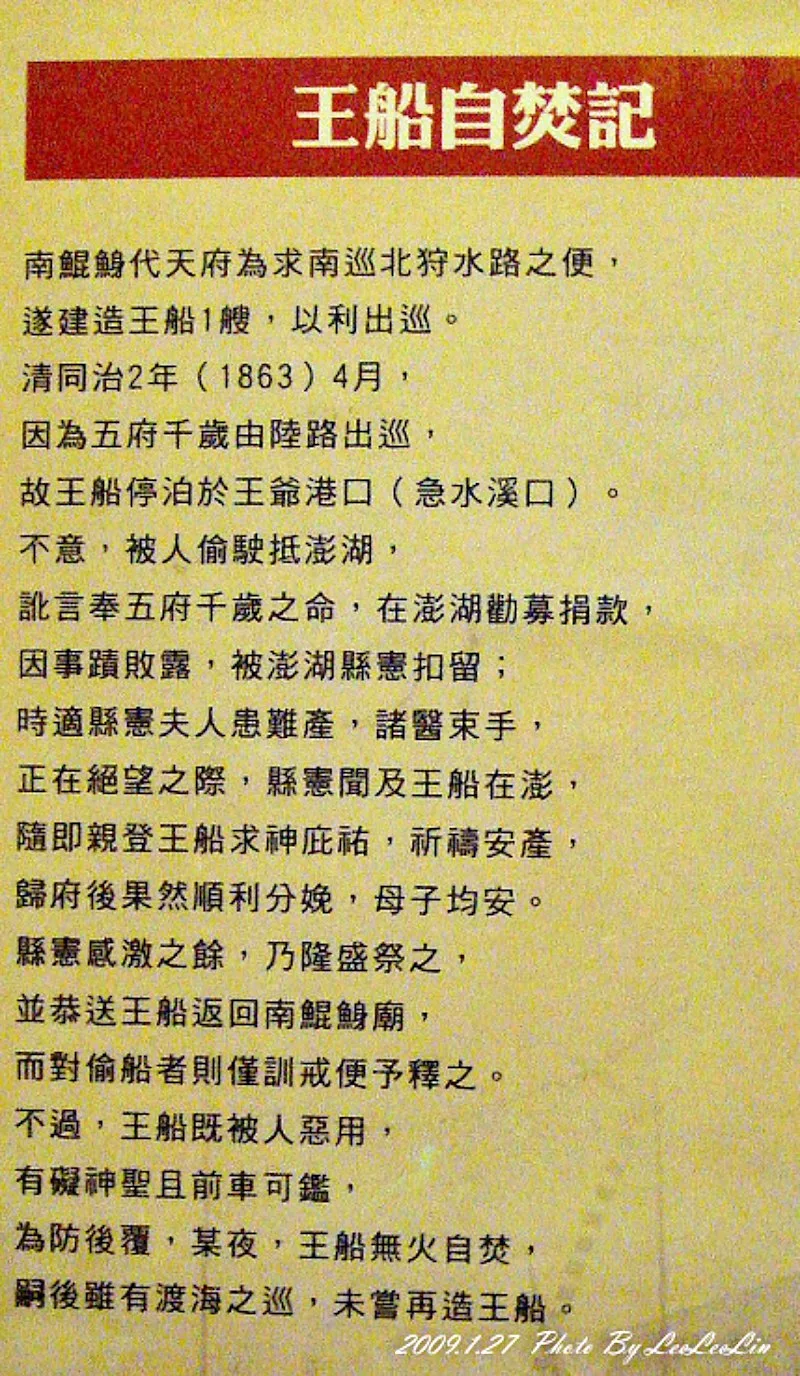 王船自焚記
南鯤鯓代天府為求南巡北狩水路之便，
遂建造王船1艘，以利出巡。
清同治2年（1863）4月，
因為五府千歲由陸路出巡，
故王船停泊於王爺港口（急水溪口）。
不意，被人偷駛抵澎湖，
訛言奉五府千歲之命，在澎湖勸募捐款，
因事蹟敗露，被澎湖縣憲扣留；
時適縣憲夫人患難產，諸醫束手，
正在絕望之際，縣憲聞及王船在澎，
隨即親登王船求神庇祐，祈禱安產，
歸府後果然順利分娩，母子均安。
縣憲感激之餘，乃隆盛祭之，
並恭送王船返回南鯤鯓廟，
而對偷船者則僅訓戒便予釋之。
不過，王船既被人惡用，
有礙神聖且前車可鑑，
為防後覆，某夜，王船無火自焚，
嗣後雖有渡海之巡，未嘗再造王船。
2009.1.27 Photo By LeoLeoLin